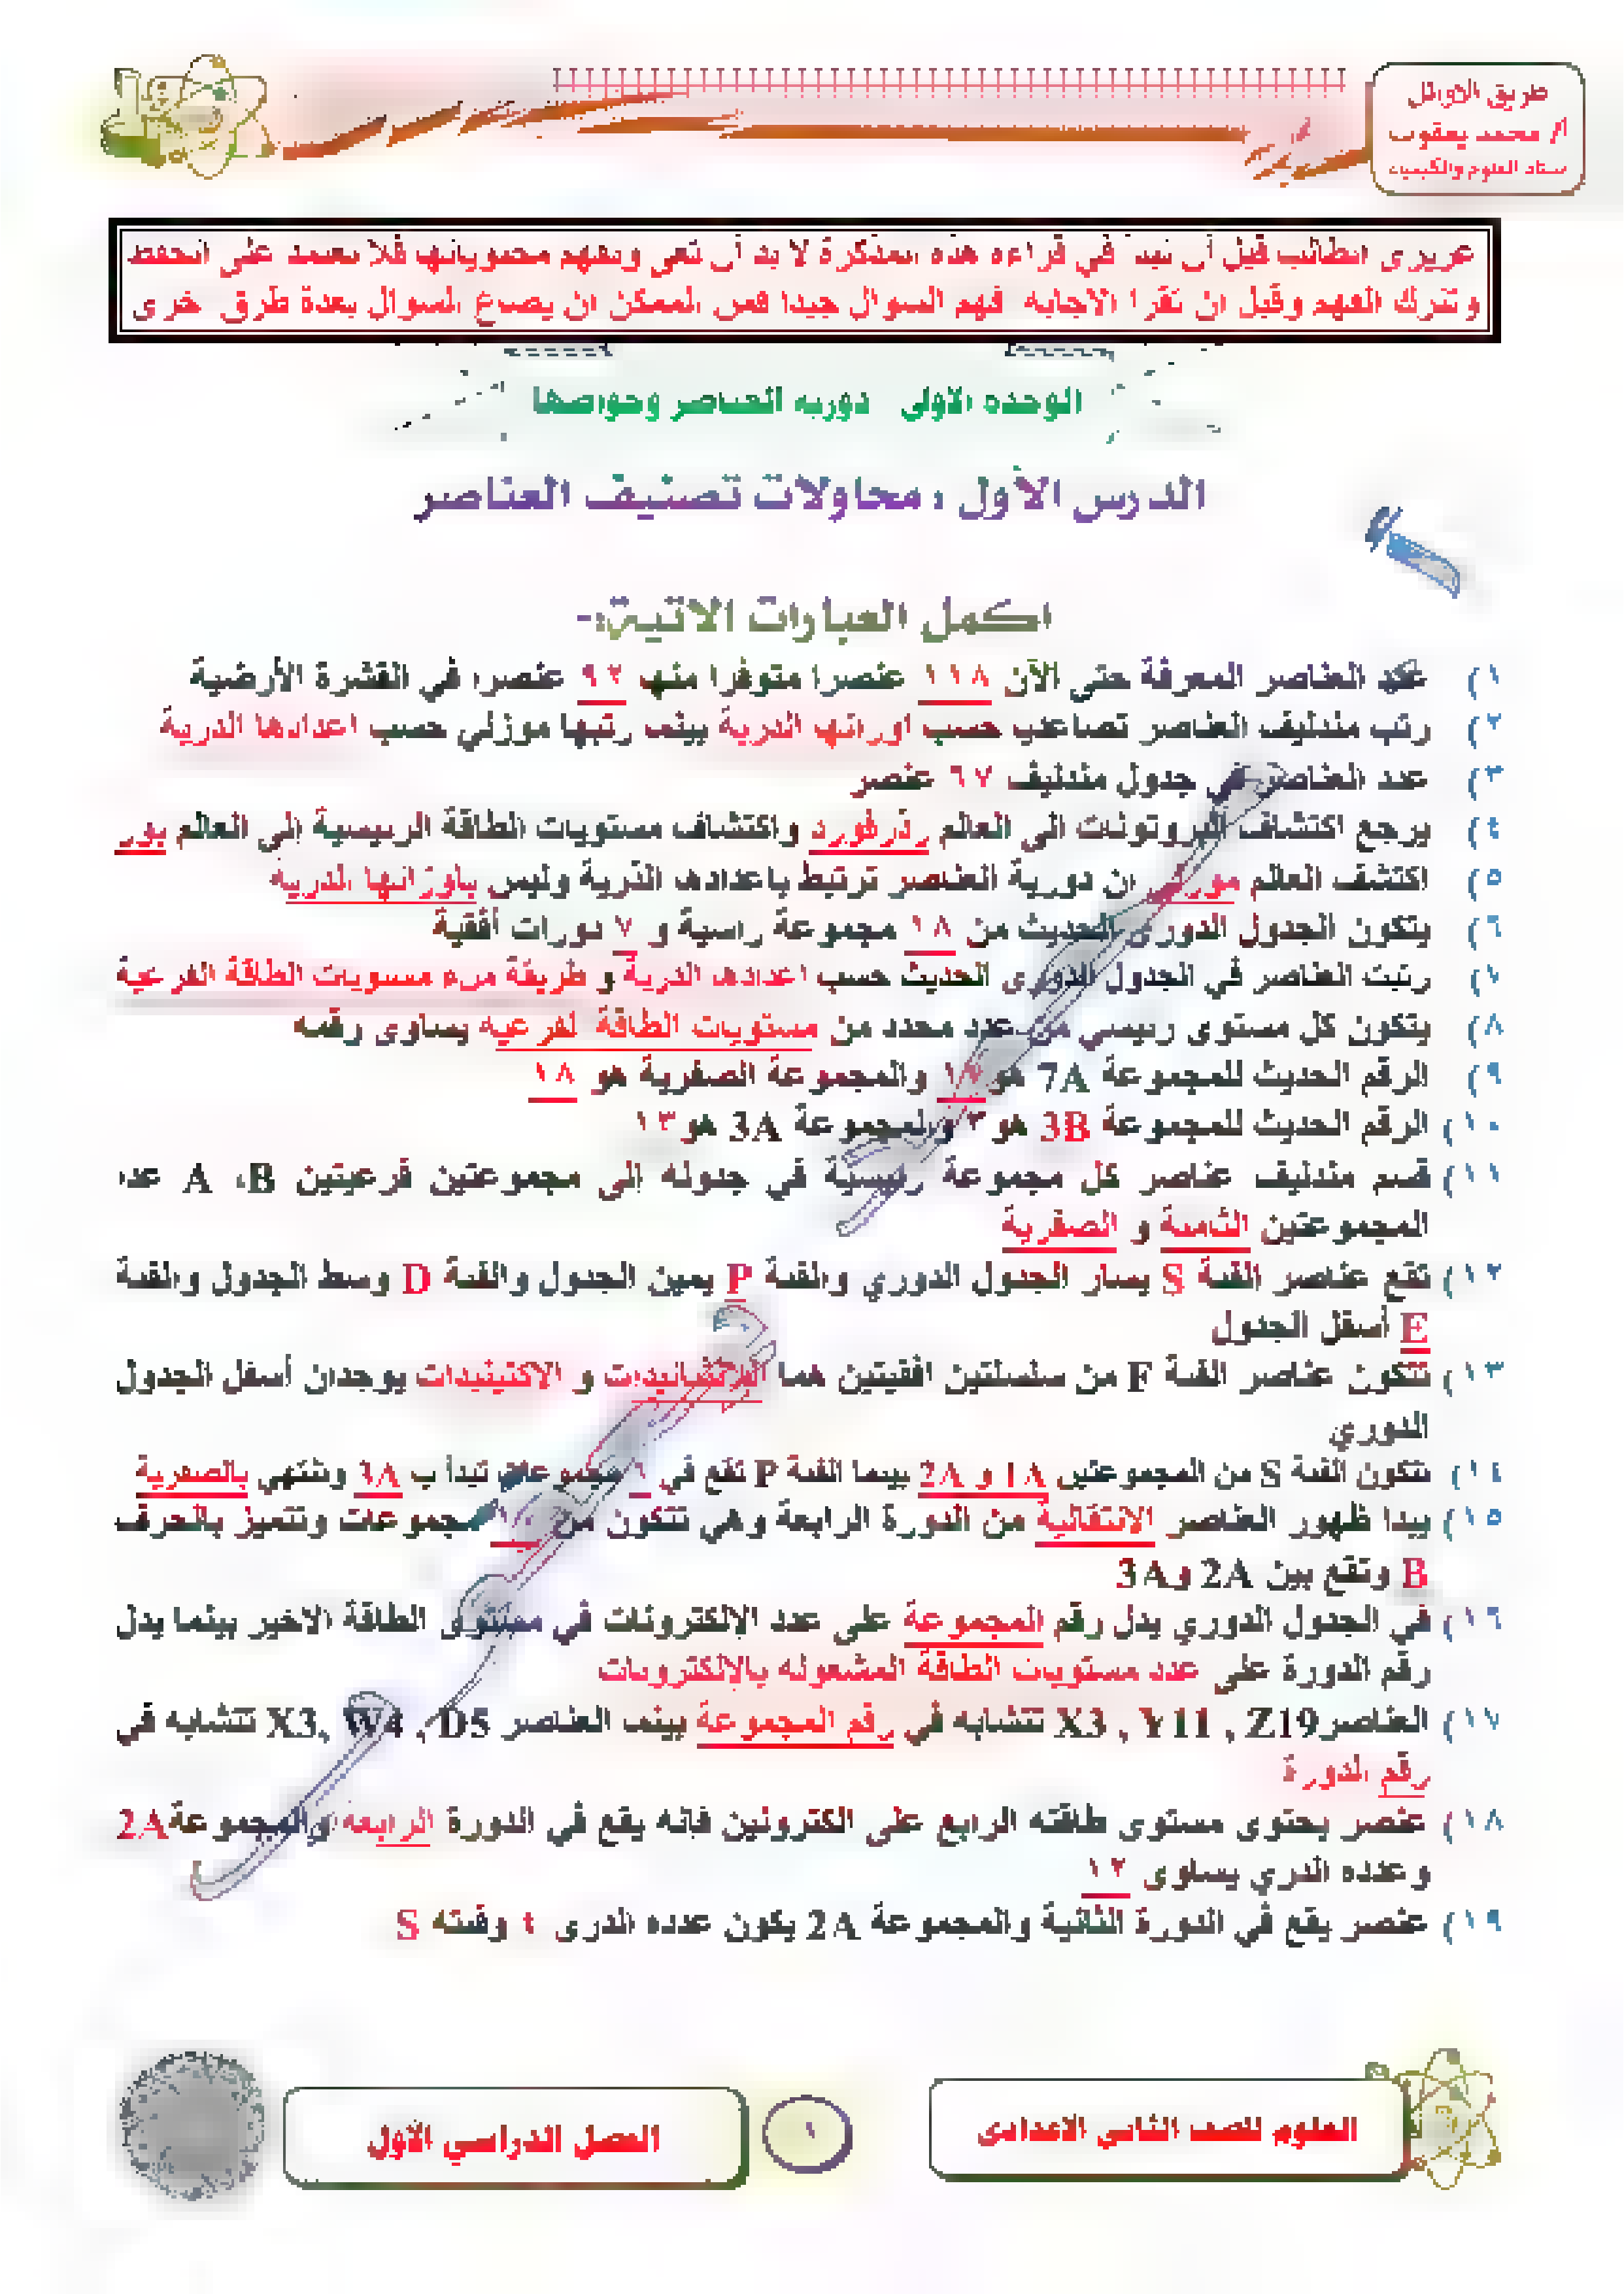 طريق الاوائل
أ/ محمد يعقوب
ستاذ العلوم والكيمياء
عزيزى الطالب قبل أن تبدأ في قراءه هذه المذكرة لا بد أن تعى وتفهم محتوياتها فلا تعتمد على الحفظ
وتترك الفهم وقبل ان تقرا الاجابه فهم السوال جيدا فمن الممكن ان يصاغ السوال بعدة طرق اخرى
الوحده الاولى دوريه العناصر وخواصها
الدرس الأول : محاولات تصنيف العناصر
اكمل العبارات الاتية:-
١) عدد العناصر المعرفة حتى الآن ١١٨ عنصرا متوفرا منها ٩٢ عنصرا في القشرة الأرضية
٢) رتب مندليف العناصر تصاعديا حسب اوزانها الذرية بينما رتبها موزلي حسب اعدادها الذرية
٣) عدد العناصر في جدول مندليف ٦٧ عنصر
٤) يرجع اكتشاف البروتونات الى العالم رذرفورد واكتشاف مستويات الطاقة الرئيسية إلى العالم بور
٥) اكتشف العالم موزلى ان دورية العناصر ترتبط باعدادها الذرية وليس باوزانها الذرية
٦) يتكون الجدول الدورى الحديث من ١٨ مجموعة راسية و ٧ دورات أفقية
٧) رتبت العناصر في الجدول الدورى الحديث حسب اعدادها الذرية و طريقة ملء مستويات الطاقة الفرعية
٨) يتكون كل مستوى رئيسي من عدد محدد من مستويات الطاقة الفرعيه يساوى رقمه
٩) الرقم الحديث للمجموعة 7A هو ١٧ والمجموعة الصفرية هو ١٨
١٠) الرقم الحديث للمجموعة 3B هو ٣ والمجموعة 3A هو ١٣
١١) قسم مندليف عناصر كل مجموعة رئيسية في جدوله إلى مجموعتين فرعيتين A ،B عدا
المجموعتين الثامنة و الصفرية
١٢) تقع عناصر الفئة S يسار الجدول الدوري والفئة P يمين الجدول والفئة D وسط الجدول والفئة
F أسفل الجدول
١٣) تتكون عناصر الفئة F من سلسلتين افقيتين هما اللانثانيدات و الاكتينيدات يوجدان أسفل الجدول
الدوري
١٤) تتكون الفئة S من المجموعتين 1A و 2A بينما الفئة P تقع في ٦ مجموعات تبدأ ب ٣A وتنتهي بالصفرية
١٥) يبدا ظهور العناصر الانتقالية من الدورة الرابعة وهي تتكون من ١٠ مجموعات وتتميز بالحرف
B وتقع بين 2A و3A
١٦) في الجدول الدوري يدل رقم المجموعة على عدد الإلكترونات في مستوى الطاقة الاخير بينما يدل
رقم الدورة على عدد مستويات الطاقة المشغوله بالإلكترونات
١٧) العناصرX3 , Y11 , Z19 تتشابه في رقم المجموعة بينما العناصر X3, W4 , D5 تتشابه في
رقم الدورة
١٨) عنصر يحتوى مستوى طاقته الرابع على الكترونين فإنه يقع في الدورة الرابعة والمجموعة2A
وعدده الذري يساوى ١٢
١٩) عنصر يقع في الدورة الثانية والمجموعة 2A يكون عدده الذرى ٤ وفئته S
العلوم للصف الثاني الاعدادى
١
الفصل الدراسي الأول